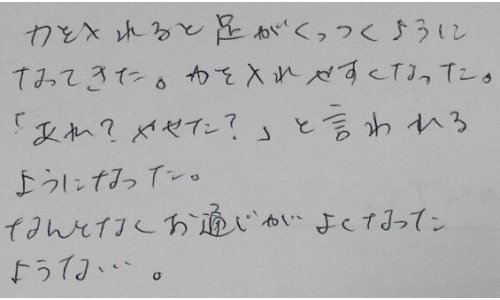 力を入れると足がくっつくように
なってきた。力を入れやすくなった。
「あれ？やせた？」と言われる
ようになった。
なんとなくお通じがよくなった
ような…。